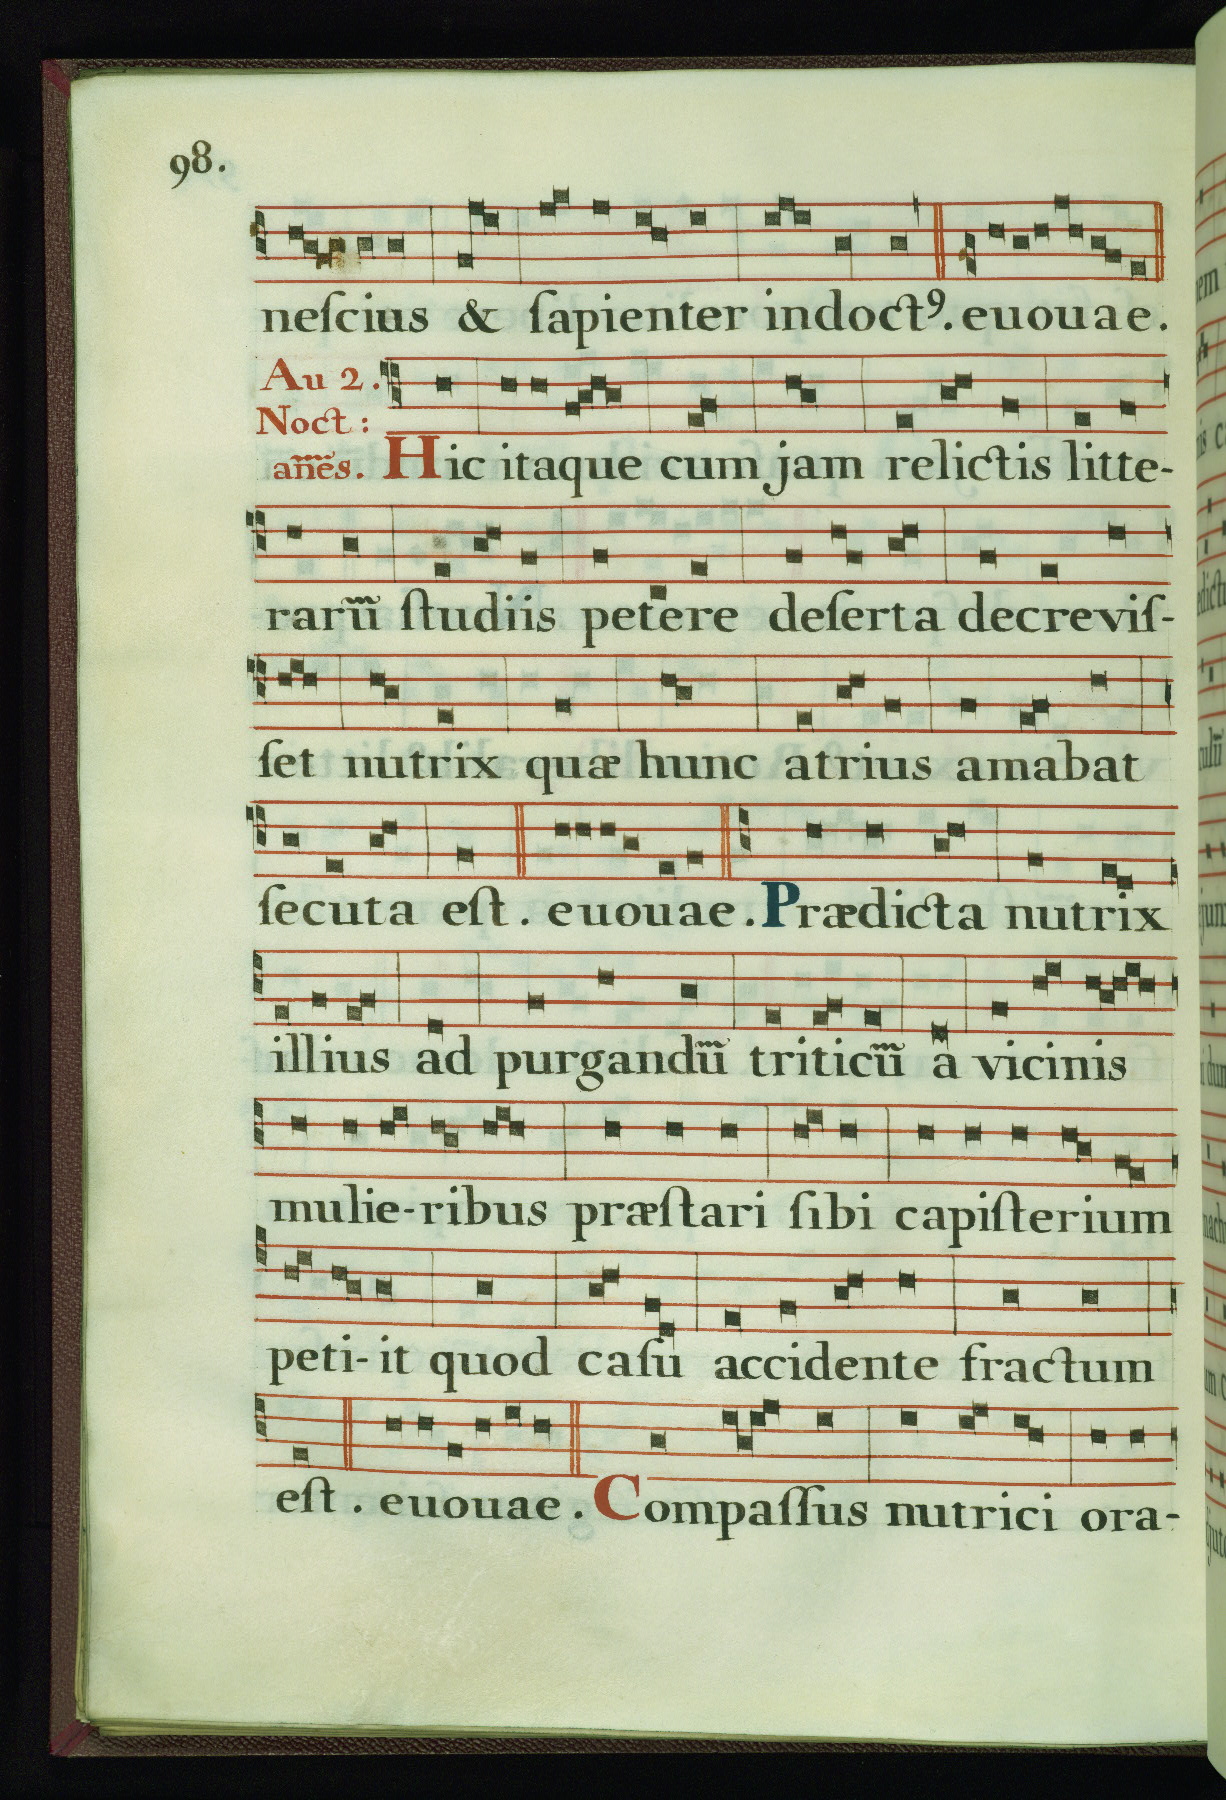 98.
neſcius & ſapienter indoctꝰ. euouae.
Au 2.
Noct:
añes. Hic itaque cum jam relictis litte-
rarũ ſtudiis petere deſerta decreviſ-
ſet nutrix quæ hunc atrius amabat
ſecuta eſt. euouae. Prædicta nutrix
illius ad purgandũ triticũ a vicinis
mulie-ribus præſtari ſibi capiſterium
peti-it quod caſu accidente fractum
eſt. euouae. Compaſſus nutrici ora-